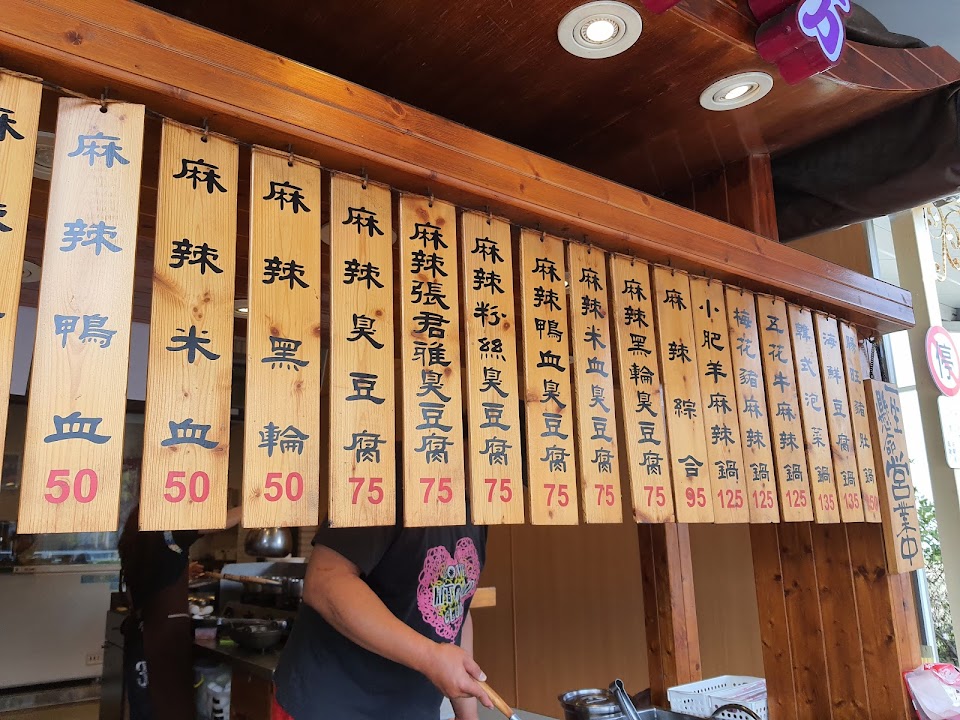 麻辣
麻辣鴨血 50
麻辣米血 50
麻辣黑輪 50
麻辣臭豆腐 75
麻辣張君雅臭豆腐 75
麻辣粉絲臭豆腐 75
麻辣鴨血臭豆腐 75
麻辣米血臭豆腐 75
麻辣黑輪臭豆腐 75
麻辣綜合 95
小肥羊麻辣鍋 125
梅花豬麻辣鍋 125
五花牛麻辣鍋 125
韓式泡菜鍋 135
海鮮豆腐鍋 135
豬肚鍋
營業中
停